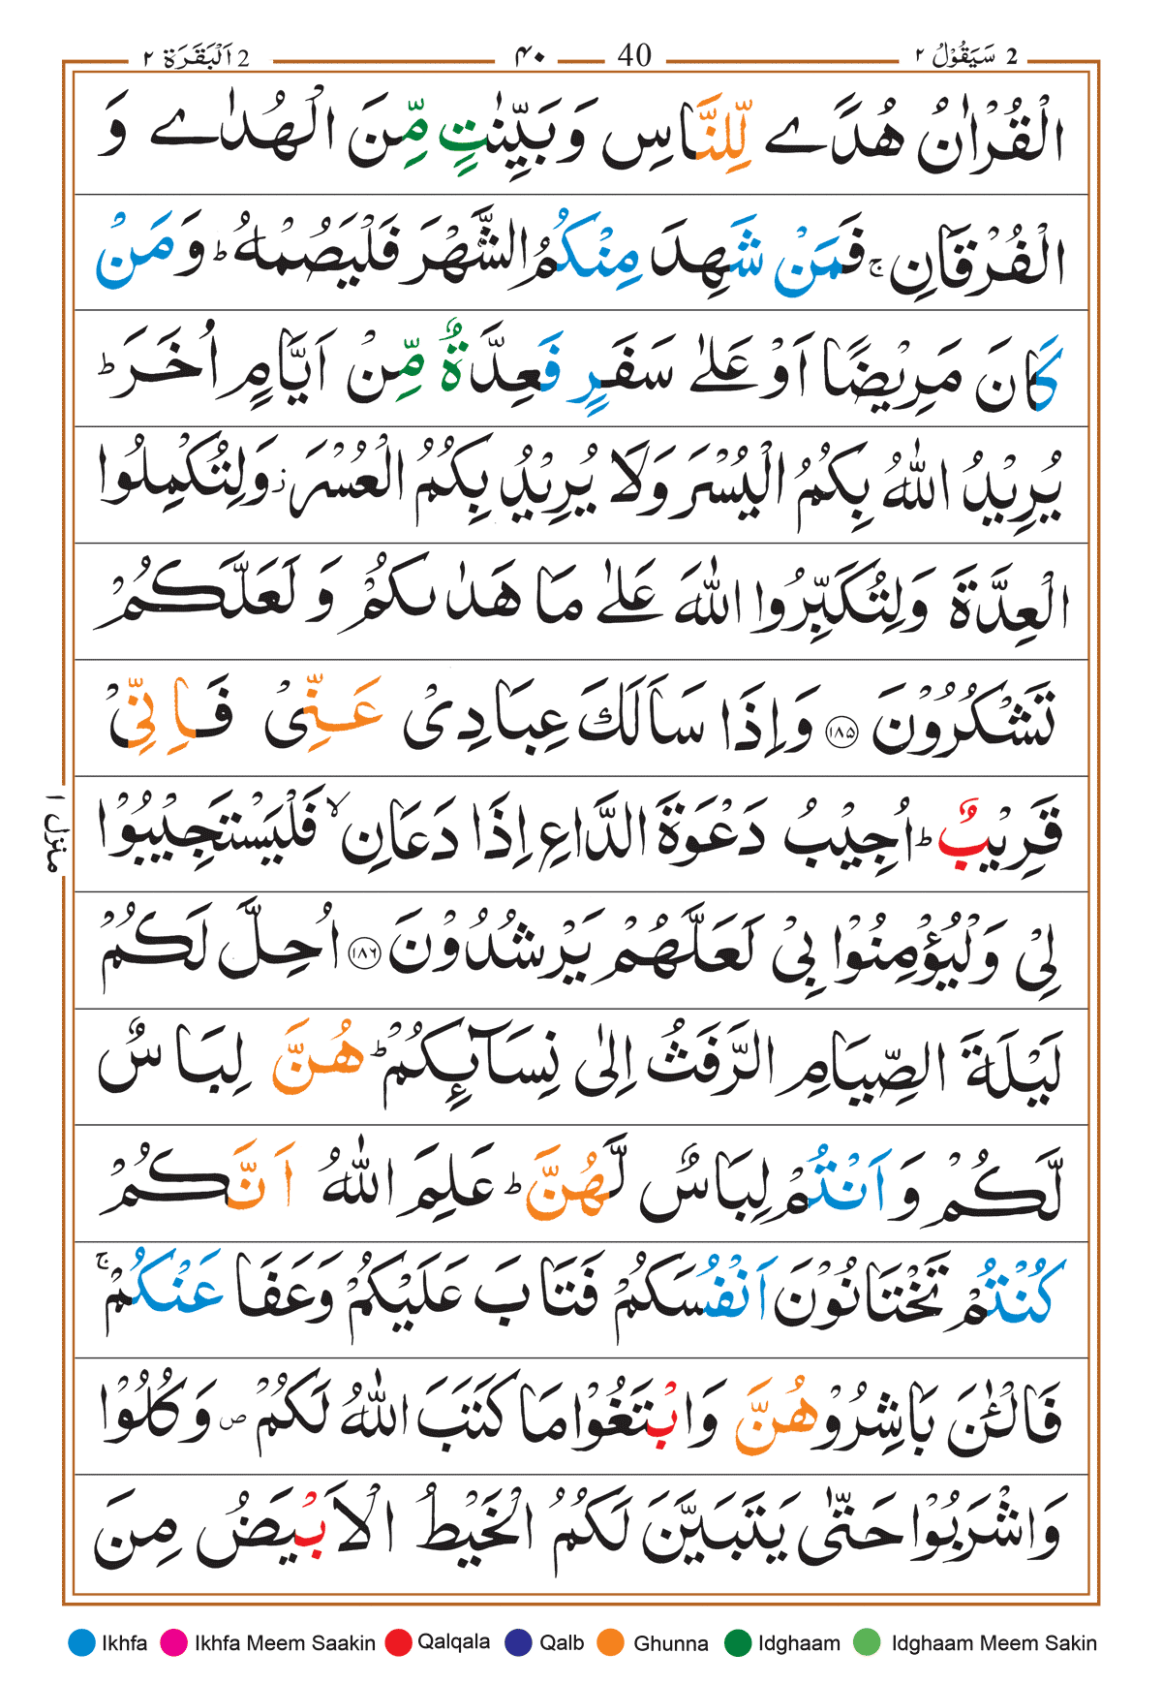 2 سَيَقُوْلُ ٢ 40 ۴۰ 2 اَلْبَقَرَة ٢
الْقُرْاٰنُ هُدًى لِّلنَّاسِ وَبَيِّنٰتٍ مِّنَ الْهُدٰى وَ
الْفُرْقَانِ ۚ فَمَنْ شَهِدَ مِنْكُمُ الشَّهْرَ فَلْيَصُمْهُ ؕ وَمَنْ
كَانَ مَرِيْضًا اَوْ عَلٰى سَفَرٍ فَعِدَّةٌ مِّنْ اَيَّامٍ اُخَرَ ؕ
يُرِيْدُ اللّٰهُ بِكُمُ الْيُسْرَ وَلَا يُرِيْدُ بِكُمُ الْعُسْرَ ز وَلِتُكْمِلُوا
الْعِدَّةَ وَلِتُكَبِّرُوا اللّٰهَ عَلٰى مَا هَدٰىكُمْ وَ لَعَلَّكُمْ
تَشْكُرُوْنَ ۝۱۸۵ وَاِذَا سَاَلَكَ عِبَادِىْ عَنِّىْ فَاِنِّىْ
قَرِيْبٌ ؕ اُجِيْبُ دَعْوَةَ الدَّاعِ اِذَا دَعَانِ ۙ فَلْيَسْتَجِيْبُوْا
لِىْ وَلْيُؤْمِنُوْا بِىْ لَعَلَّهُمْ يَرْشُدُوْنَ ۝۱۸۶ اُحِلَّ لَكُمْ
لَيْلَةَ الصِّيَامِ الرَّفَثُ اِلٰى نِسَآئِكُمْ ؕ هُنَّ لِبَاسٌ
لَّكُمْ وَاَنْتُمْ لِبَاسٌ لَّهُنَّ ؕ عَلِمَ اللّٰهُ اَنَّكُمْ
كُنْتُمْ تَخْتَانُوْنَ اَنْفُسَكُمْ فَتَابَ عَلَيْكُمْ وَعَفَا عَنْكُمْ ۚ
فَالْـٰٔنَ بَاشِرُوْهُنَّ وَابْتَغُوْا مَا كَتَبَ اللّٰهُ لَكُمْ ص وَكُلُوْا
وَاشْرَبُوْا حَتّٰى يَتَبَيَّنَ لَكُمُ الْخَيْطُ الْاَبْيَضُ مِنَ
منزل ١
Ikhfa Ikhfa Meem Saakin Qalqala Qalb Ghunna Idghaam Idghaam Meem Sakin